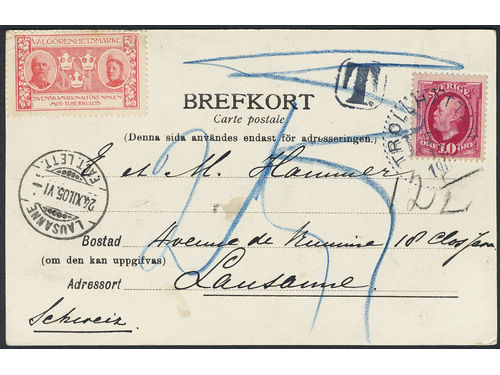 VÄLGÖRENHETSMÄRKE
SVENSKA NATIONALFÖRENINGEN
MOT TUBERKULOS
T
SVERIGE
10 ÖRE
TROLLH
BREFKORT
Carte postale
(Denna sida användes endast för adresseringen.)
LAUSANNE
24.XII.05. VI
Hammer
25
Bostad Avenue de Rumine 18
(om den kan uppgifvas)
Adressort Lausanne
Schweiz